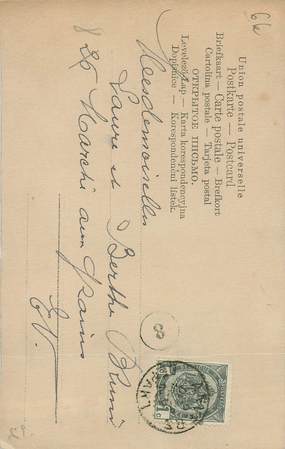 Union postale universelle
Postkarte — Postcard
Briefkaart — Carte postale — Brefkort
Cartolina postale — Tarjeta postal
ОТКРЫТОЕ ПИСЬМО.
Levelező-Lap — Karta korespondencyjna
Dopisnice — Korespondenční lístek.
Mesdemoiselles
Laure et Berthe
85 Marché aux Grains
E/V.
8